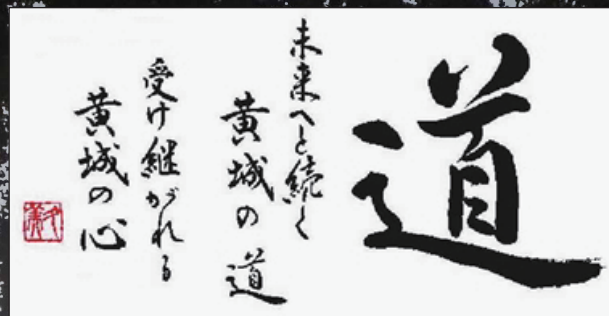 道
未来へと続く
黄城の道
受け継がれる
黄城の心